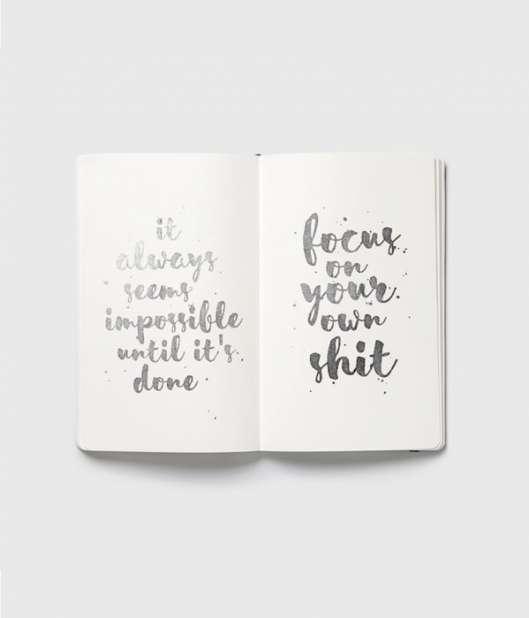 it
always
seems
impossible
until it's
done
focus
on
your
own
shit